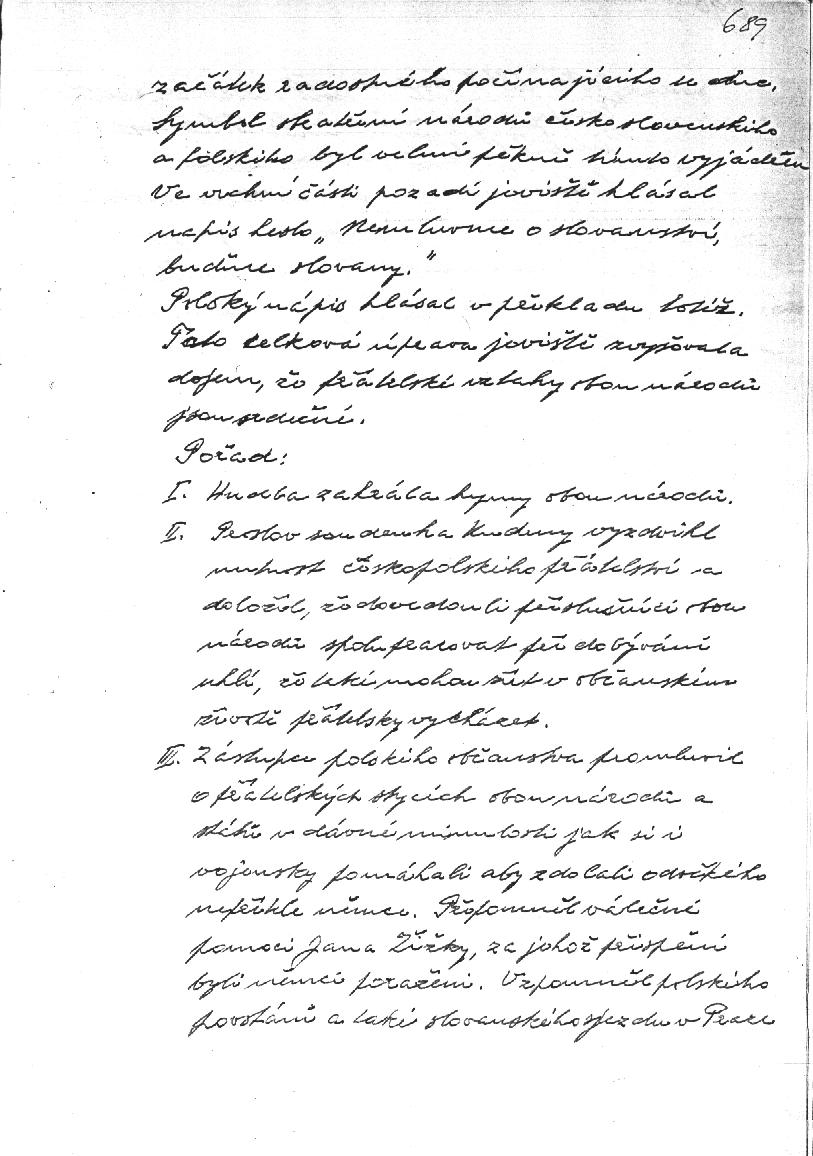 689
začátek radostného počínajícího se dne.
Symbol sbratření národů československého
a polského byl velmi pěkně tímto vyjádřen
Ve vrchní části pozadí jeviště hlásal
nápis heslo „Nemluvme o slovanství,
buďme slovany."
Polský nápis hlásal v překladu totéž.
Tato celková úprava jeviště zvyšovala
dojem, že přátelské vztahy obou národů
jsou srdečné.
Pořad:
I. Hudba zahrála hymny obou národů.
II. Proslov soudruha Kudeny vyzdvihl
nutnost českopolského přátelství a
doložil, že dovedou li příslušníci obou
národů spolupracovat při dobývání
uhlí, že také mohou též v občanském
životě přátelsky vycházet.
III. Zástupce polského občanstva promluvil
o přátelských stycích obou národů a
sice v dávné minulosti jak si i
vojensky pomáhali aby zdolali odvěkého
nepřítele němce. Připomněl válečné
pomoci Jana Žižky, za jehož přispění
byli němci poraženi. Vzpomněl polského
povstání a také slovanského sjezdu v Praze